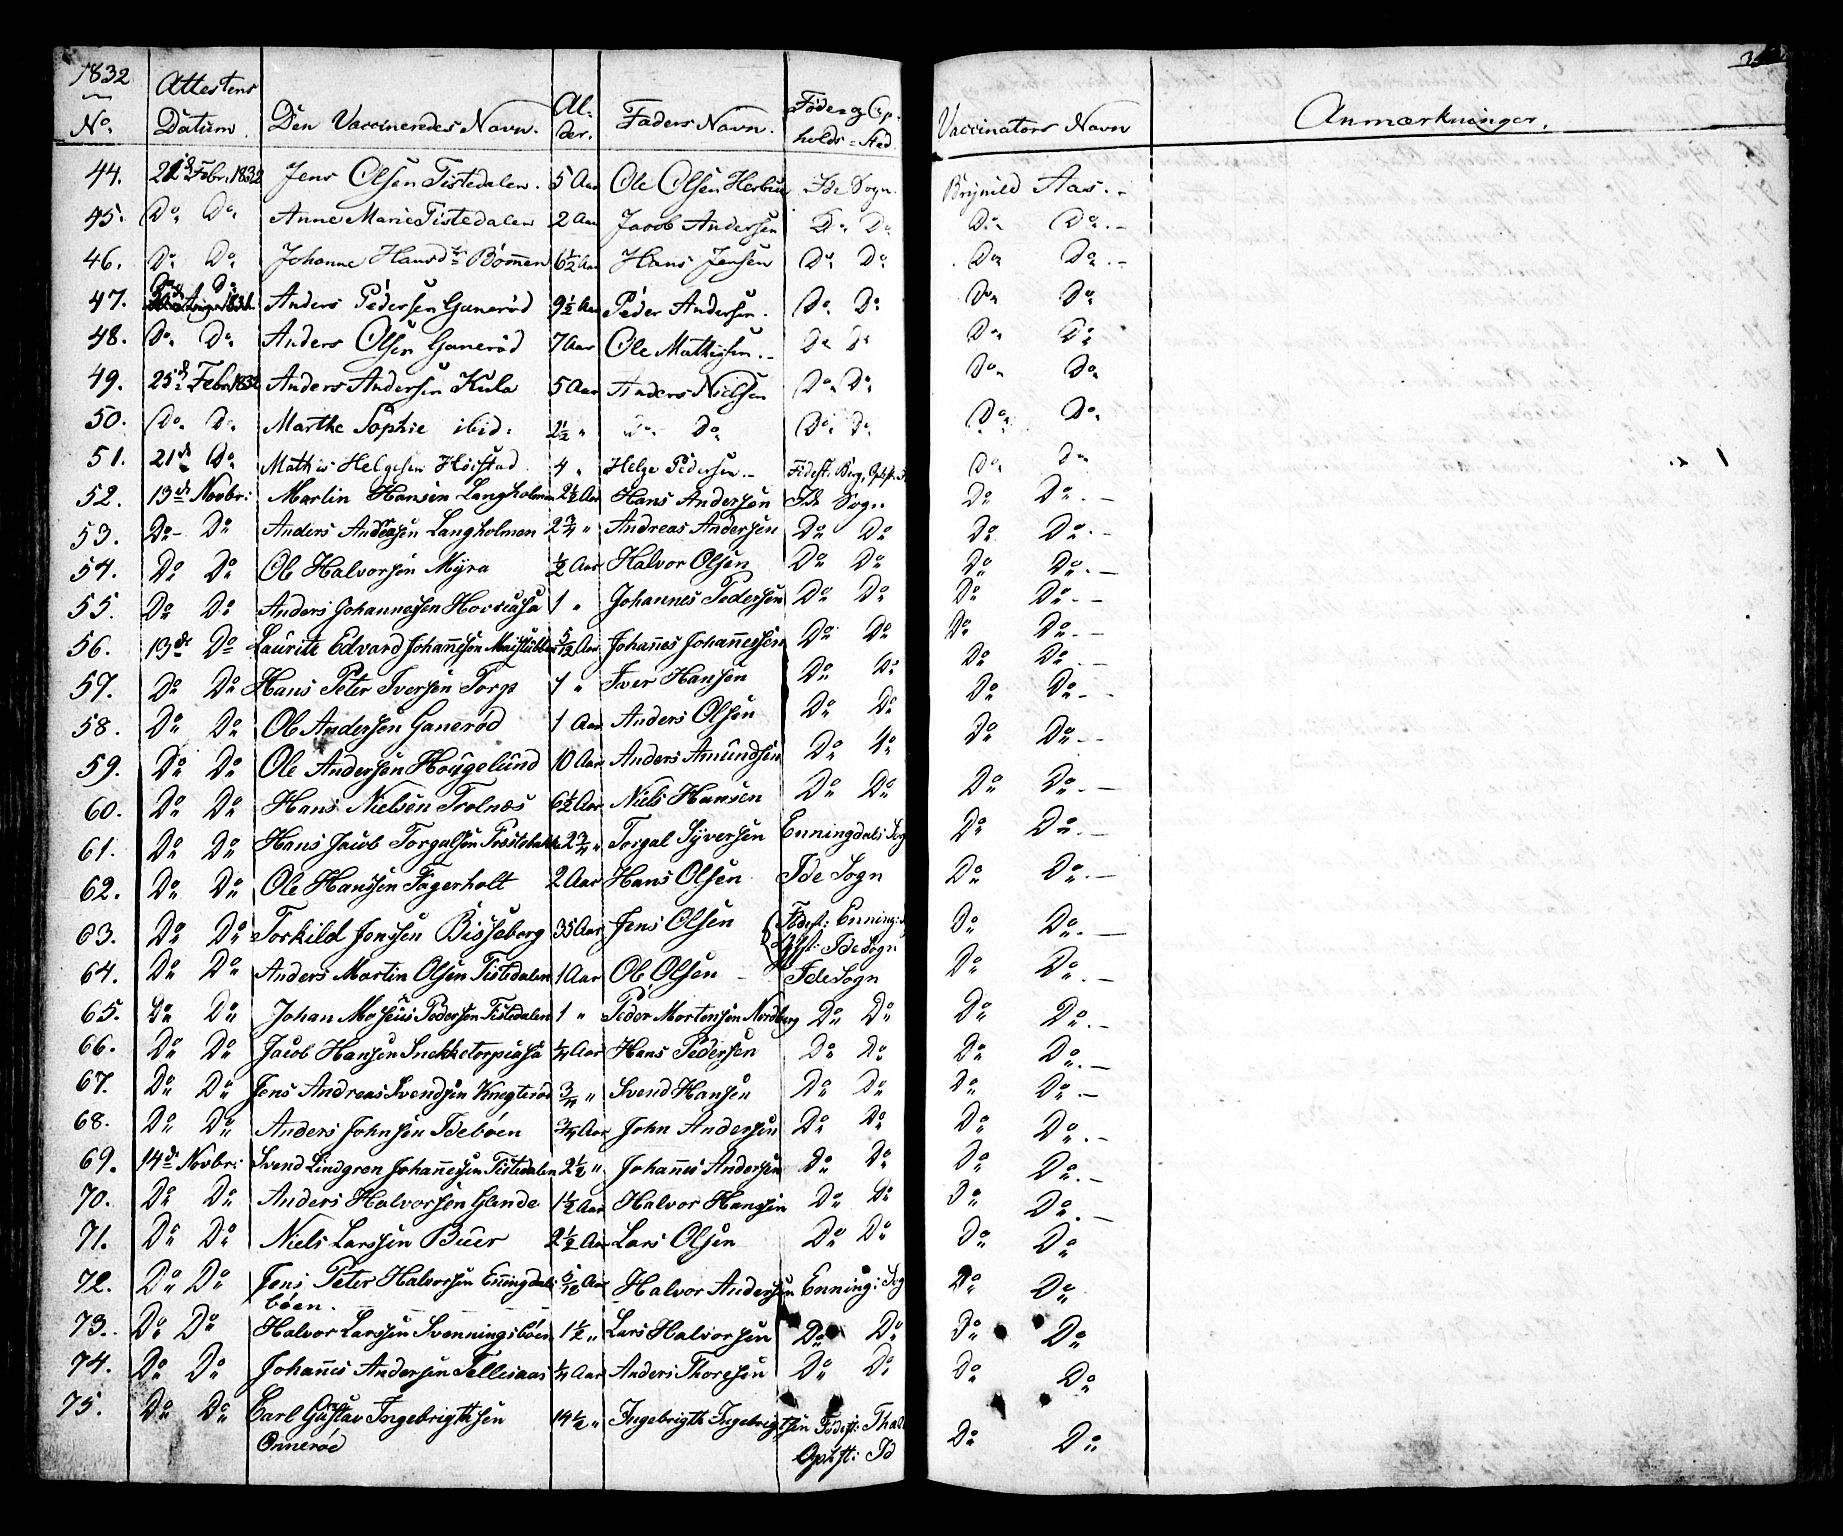 1832
No. Attestens Datum. Den Vaccineredes Navn. Al-der. Faders Navn. Føde- og Op-holds-Sted. Vaccinators Navn Anmærkninger.
44. 21de Febr. 1832 Jens Olsen Tistedalen. 5 Aar Ole Olsen Ide Sogn. Brynild Aas.
45. Do. Do. Anne Marie Tistedalen 2 Aar Jacob Andersen Do. Do. Do. Do.
46. Do. Do. Johanne Hansdtr Bømmen 6½ Aar Hans Jensen Do. Do. Do. Do.
47. Do. Do. Anders Pedersen Ganerød 9½ Aar Peder Andersen. Do. Do. Do. Do.
48. Do. Do. Anders Olsen Ganerød 7 Aar Ole Mathissen. Do. Do. Do. Do.
49. 25de Febr. 1832 Anders Andersen Kula 5 Aar Anders Nielsen Do. Do. Do. Do.
50. Do. Do. Marthe Sophie ibid. 2½ " Do. Do. Do. Do. Do. Do.
51. 21de Do. Mathis Helgesen Høistad 4 " Helge Pedersen Fødest: Berg, Do. Do.
52. 13de Novbr: Martin Hansen Langholmen 2½ Aar Hans Andersen Ide Sogn Do. Do.
53. Do. Do. Anders Andersen Langholmen 2¾ " Andreas Andersen Do. Do. Do. Do.
54. Do. Do. Ole Halvorsen Myra ½ Aar Halvor Olsen Do. Do. Do. Do.
55. Do. Do. Anders Johannesen 1 " Johannes Pedersen Do. Do. Do. Do.
56. 13de Do. Lauritz Edvard Johannesen 5/12 Aar Johannes Johannessen Do. Do. Do. Do.
57. Do. Do. Hans Peter Iversen Torp 1 " Iver Hansen Do. Do. Do. Do.
58. Do. Do. Ole Andersen Ganerød 1 Aar Anders Olsen Do. Do. Do. Do.
59. Do. Do. Ole Andersen Hougelund 10 Aar Anders Amundsen Do. Do. Do. Do.
60. Do. Do. Hans Nielsen Trolnæs 6½ Aar Niels Hansen Do. Do. Do. Do.
61. Do. Do. Hans Jacob Torgalsen 2¾ " Torgal Syversen Enningdals Sog Do. Do.
62. Do. Do. Ole Hansen Fagerholt 2 Aar Hans Olsen Ide Sogn Do. Do.
63. Do. Do. Torkild Jensen Bisseberg 35 Aar Jens Olsen Fødest: Enning: Do. Do.
Opst: Ide Sogn
64. Do. Do. Anders Martin Olsen Tistedalen 1 Aar Ole Olsen Ide Sogn Do. Do.
65. Do. Do. Johan Moseus Pedersen Tistedalen 1 " Peder Mortensen Nordberg Do. Do. Do. Do.
66. Do. Do. Jacob Hansen ¼ Aar Hans Pedersen Do. Do. Do. Do.
67. Do. Do. Jens Andreas Svendsen Knegterød ¾ " Svend Hansen Do. Do. Do. Do.
68. Do. Do. Anders Johnsen Idebøen ¾ Aar John Andersen Do. Do. Do. Do.
69. 14de Novbr: Svend Lindgren Johannesen Tistedalen 2½ " Johannes Andersen Do. Do. Do. Do.
70. Do. Do. Anders Halvorsen Glende 1½ Aar Halvor Hansen Do. Do. Do. Do.
71. Do. Do. Niels Larssen Buer 2½ Aar Lars Olsen Do. Do. Do. Do.
72. Do. Do. Jens Peter Halvorsen Enningdals 5/12 Aar Halvor Andersen Enning: Sog Do. Do.
bøen.
73. Do. Do. Halvor Larssen Svenningsbøen 1½ " Lars Halvorsen Do. Do. Do. Do.
74. Do. Do. Johannes Andersen Tellesaas ¼ Aar Anders Thoresen Do. Do. Do. Do.
75. Do. Do. Carl Gustav Ingebrigthsen 14½ " Ingebrigth Ingebrigtsen Fødest: Do. Do.
Onnerød Opst: Id